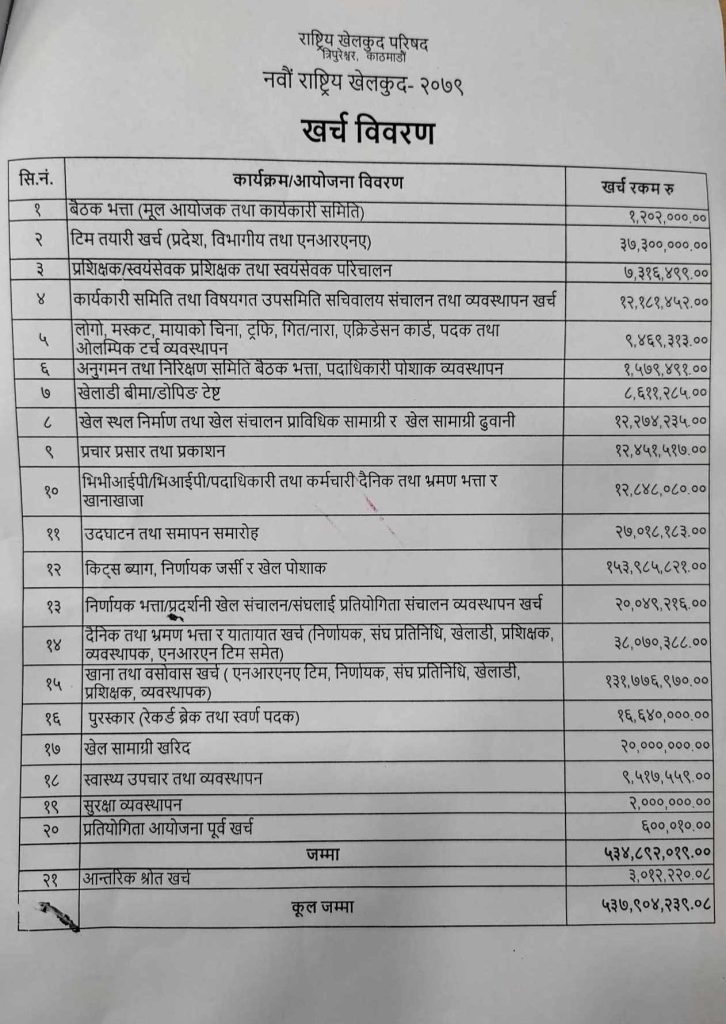 राष्ट्रिय खेलकुद परिषद
त्रिपुरेश्वर, काठमाडौं
नवौं राष्ट्रिय खेलकुद- २०७९
खर्च विवरण
सि.नं. कार्यक्रम/आयोजना विवरण खर्च रकम रु
१ बैठक भत्ता (मूल आयोजक तथा कार्यकारी समिति) १,२०२,०००.००
२ टिम तयारी खर्च (प्रदेश, विभागीय तथा एनआरएनए) ३७,३००,०००.००
३ प्रशिक्षक/स्वयंसेवक प्रशिक्षक तथा स्वयंसेवक परिचालन ७,३१६,४९९.००
४ कार्यकारी समिति तथा विषयगत उपसमिति सचिवालय संचालन तथा व्यवस्थापन खर्च १२,१८१,४५२.००
५ लोगो, मस्कट, मायाको चिना, ट्रफि, गित/नारा, एक्रिडेसन कार्ड, पदक तथा
ओलम्पिक टर्च व्यवस्थापन ९,४६९,३१३.००
६ अनुगमन तथा निरिक्षण समिति बैठक भत्ता, पदाधिकारी पोशाक व्यवस्थापन १,५७९,४९१.००
७ खेलाडी बीमा/डोपिङ टेष्ट ८,६११,२८५.००
८ खेल स्थल निर्माण तथा खेल संचालन प्राविधिक सामाग्री र खेल सामाग्री ढुवानी १२,२७४,२३५.००
९ प्रचार प्रसार तथा प्रकाशन १२,४५१,५१७.००
१० भिभीआईपी/भिआईपी/पदाधिकारी तथा कर्मचारी दैनिक तथा भ्रमण भत्ता र
खानाखाजा १२,८४८,०८०.००
११ उदघाटन तथा समापन समारोह २७,०१८,१८३.००
१२ किट्स ब्याग, निर्णायक जर्सी र खेल पोशाक १५३,९८५,८२१.००
१३ निर्णायक भत्ता/प्रदर्शनी खेल संचालन/संघलाई प्रतियोगिता संचालन व्यवस्थापन खर्च २०,०४९,२१६.००
१४ दैनिक तथा भ्रमण भत्ता र यातायात खर्च (निर्णायक, संघ प्रतिनिधि, खेलाडी, प्रशिक्षक,
व्यवस्थापक, एनआरएन टिम समेत) ३८,०७०,३८८.००
१५ खाना तथा वसोवास खर्च ( एनआरएनए टिम, निर्णायक, संघ प्रतिनिधि, खेलाडी,
प्रशिक्षक, व्यवस्थापक) १३१,७७६,९७०.००
१६ पुरस्कार (रेकर्ड ब्रेक तथा स्वर्ण पदक) १६,६४०,०००.००
१७ खेल सामाग्री खरिद २०,०००,०००.००
१८ स्वास्थ्य उपचार तथा व्यवस्थापन ९,५१७,५५९.००
१९ सुरक्षा व्यवस्थापन २,०००,०००.००
२० प्रतियोगिता आयोजना पूर्व खर्च ६००,०१०.००
जम्मा ५३४,८९२,०१९.००
२१ आन्तरिक श्रोत खर्च ३,०१२,२२०.०८
कूल जम्मा ५३७,९०४,२३९.०८